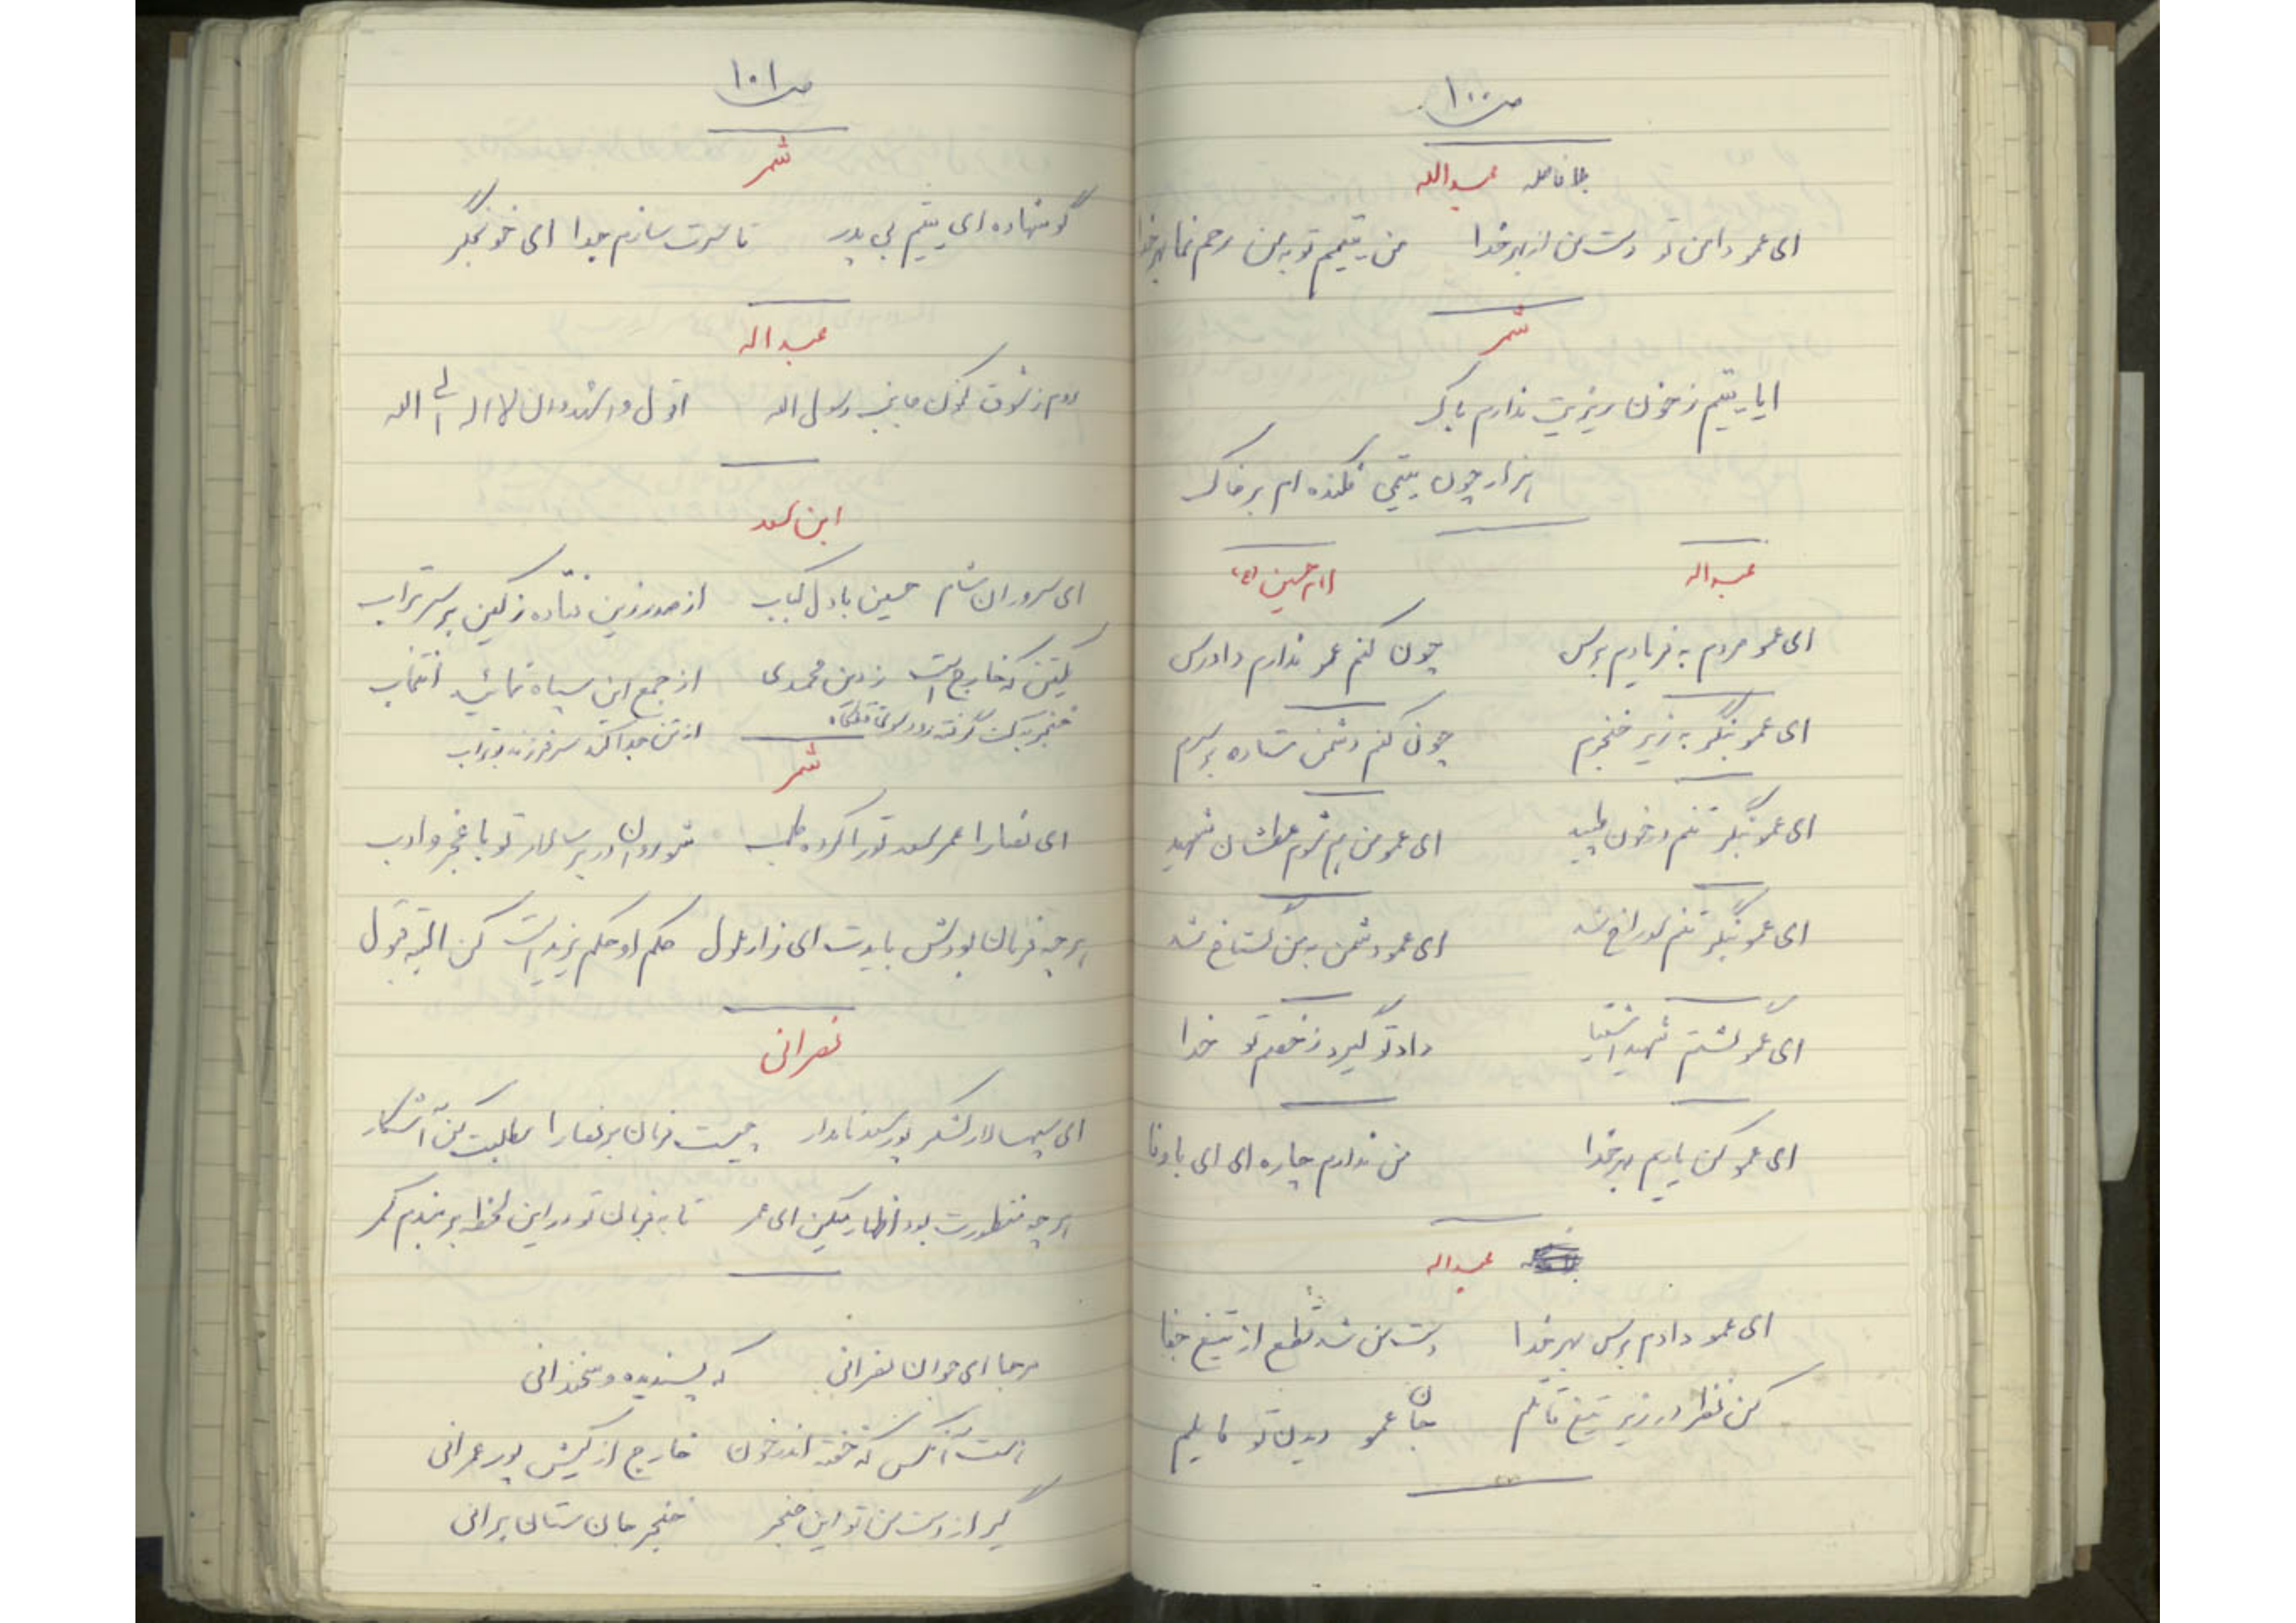 ص ۱۰۰
بلافاصله عبدالله
ای عمو دامن تو دست من از بهر خدا من یتیمم تو به من رحم نما بهر خدا
شمر
ایا یتیم ز خون ریزیت ندارم باک
هزار چون یتیمی فکنده ام بر خاک
عبداله امام حسین (ع)
ای عمو مردم به فریادم برس چون کنم عمو ندارم دادرس
ای عمو بنگر به زیر خنجرم چون کنم دشمن ستاده بر سرم
ای عمو بنگر تنم در خون طپید ای عمو من هم شوم عطشان شهید
ای عمو بنگر تنم سوراخ شد ای عمو دشمن به من گستاخ شد
ای عمو گشتم شهید اشقیا داد تو گیرد ز خصم تو خدا
ای عمو کن یاریم بهر خدا من ندارم چاره ای ای باوفا
عبداله
ای عمو دادم برس بهر خدا دست من شد قطع از تیغ جفا
کن نظر در زیر تیغ قاتلم جان عمو دیدن تو مایلم
ص ۱۰۱
شمر
گو شهاده ای یتیم بی پدر تا سرت سازم جدا ای خونجگر
عبداله
روم ز شوق کنون جانب رسول الله اقول و اشهد و ان لا اله الی الله
ابن سعد
ای سروران شام حسین با دل کباب از صدر زین فتاده ز کین بر سر تراب
یکتن که خارج است ز دین محمدی از جمع این سپاه نمائید انتخاب
خنجر به کف گرفته رود سوی قتلگاه از تن جدا کند سر فرزند بوتراب
شمر
ای نصارا عمر سعد تو را کرده طلب شو روان در بر سالار تو با عجز و ادب
هر چه فرمان بودش بایدت ای زار ملول حکم او حکم یزید است کن البته قبول
نصرانی
ای سپهسالار لشکر پور سعد نامدار چیست فرمان بر نصارا مطلبت کن آشکار
هر چه منظورت بود اظهار میکن ای عمر تا به فرمان تو در این لحظه بر بندم کمر
مرحبا ای جوان نصرانی که پسندیده و سخندانی
هست آنکس که خفته اندر خون خارج از کیش پور عمرانی
گیر از دست من تو این خنجر خنجر جان ستان برانی